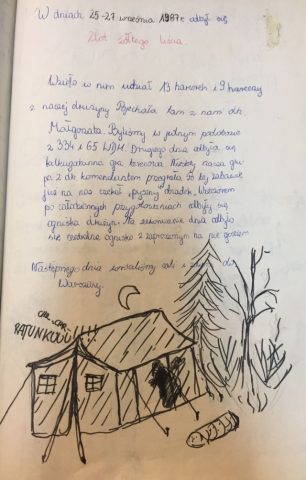 W dniach 25-27 września 1987r. odbył się
Zlot żółtego liścia.
Wzięło w nim udział 13 harcerek i 9 harcerzy
z naszej drużyny. Pojechała tam z nami dh.
Małgorzata. Byliśmy w jednym podobozie
z 334 i 65 WDH. Drugiego dnia odbyła się
kilkugodzinna gra terenowa. Niestety nasza gru-
pa z dh komendantem przegrała
już na nas czekał "pyszny" obiadek. Wieczorem
po całodziennych przygotowaniach odbyły się
ogniska drużyn. Na zakończenie dnia odbyło
się ognisko z zaproszonym na nie gościem
Następnego dnia wróciliśmy cali i do
Warszawy.
RATUNKUUU!!!!